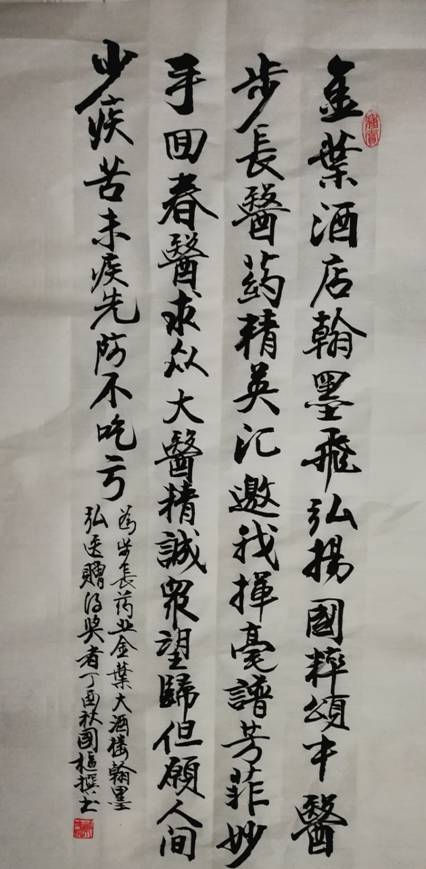 金葉酒店翰墨飛弘揚國粹頌中醫
步長醫药精英汇邀我揮毫譜芳菲妙
手回春醫求众大醫精誠眾望歸但願人间
少疾苦未疾先防不吃亏
为步長药业金葉大酒楼翰墨
弘医赠得奖者丁酉秋國樞撰书